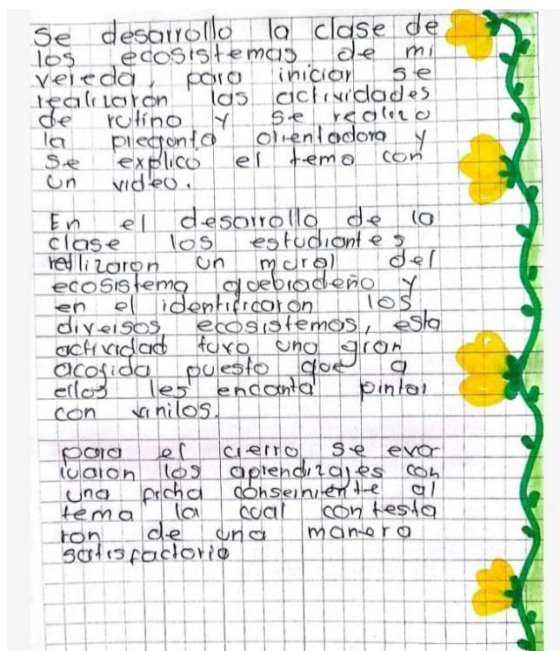 Se desarrollo la clase de
los ecosistemas de mi
vereda, para iniciar se
realizaron las actividades
de rutina y se realizo
la pregunta orientadora y
se explico el tema con
un video.
En el desarrollo de la
clase los estudiantes
realizaron un mural del
ecosistema quebradeño y
en el identificaron los
diversos ecosistemas, esta
actividad tuvo una gran
acogida puesto que a
ellos les encanta pintar
con vinilos.
para el cierro se eva
luaron los aprendizajes con
una ficha conserniente al
tema la cual contesta
ron de una manera
satisfactoria